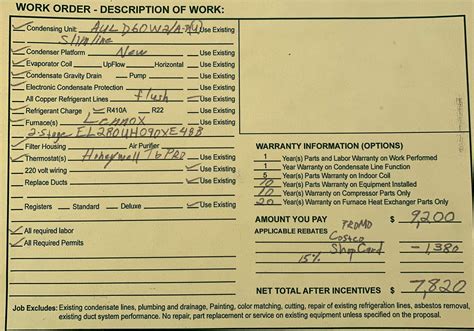 WORK ORDER - DESCRIPTION OF WORK:
Condensing Unit: Use Existing
Slimline
Condenser Platform New Use Existing
Evaporator Coil UpFlow Horizontal Use Existing
Condensate Gravity Drain Pump Use Existing
Electronic Condensate Protection
All Copper Refrigerant Lines flush Use Existing
Refrigerant Charge R410A R22 Use Existing
Furnace(s) Lennox Use Existing
2-Stage EL280UH090XE48B
Filter Housing Air Purifier Use Existing
Thermostat(s) Honeywell T6 PRO Use Existing
220 volt wiring Use Existing
Replace Ducts Use Existing
Registers Standard Deluxe Use Existing
All required labor
All Required Permits
WARRANTY INFORMATION (OPTIONS)
1 Year(s) Parts and Labor Warranty on Work Performed
1 Year(s) Warranty on Condensate Line Function
5 Year(s) Parts Warranty on Indoor Coil
10 Year(s) Parts Warranty on Equipment Installed
10 Year(s) Warranty on Compressor Parts Only
20 Year(s) Warranty on Furnace Heat Exchanger Parts Only
AMOUNT YOU PAY $ 9,200
APPLICABLE REBATES PROMO
Costco
Shop Card -1,380
15%
NET TOTAL AFTER INCENTIVES $ 7,820
Job Excludes: Existing condensate lines, plumbing and drainage, Painting, color matching, cutting, repair of existing refrigeration lines, asbestos removal,
existing duct system performance. No repair, part replacement or service on existing equipment unless specified on the proposal.